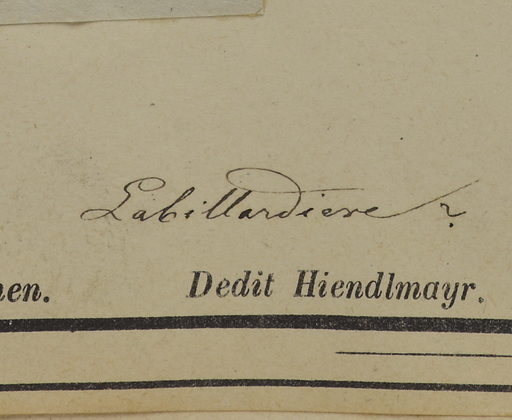 Labillardiere ?
nen. Dedit Hiendlmayr.